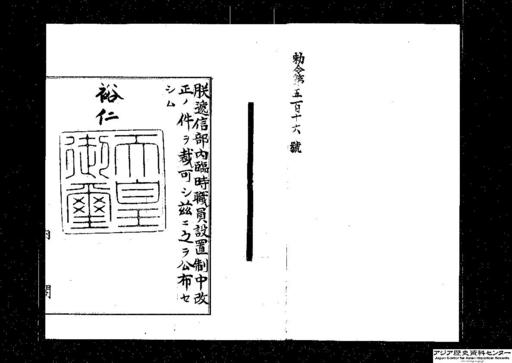 勅令第五百十六號
朕遞信部內臨時職員設置制中改
正ノ件ヲ裁可シ茲ニ之ヲ公布セ
シム
裕仁
天皇
御璽
內閣
アジア歴史資料センター
Japan Center for Asian Historical Records